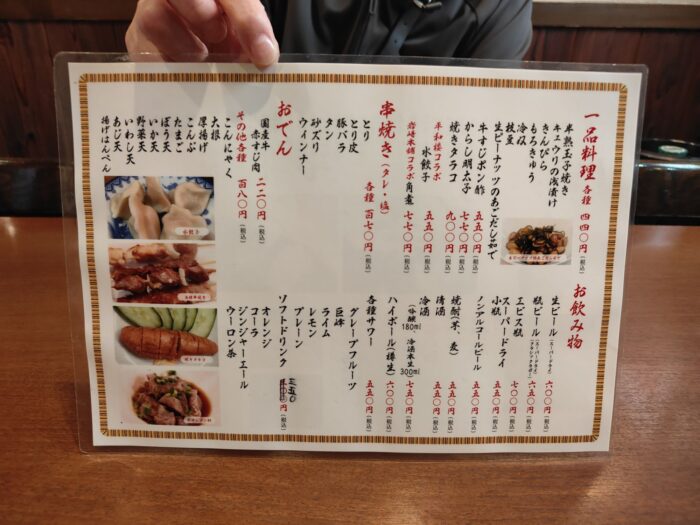 一品料理 各種 四四〇円(税込)
半熟玉子焼き
キュウリの浅漬け
きんぴら
もろきゅう
冷奴
枝豆
生ピーナッツのあごだし茹で
牛すじポン酢 五五〇円(税込)
からし明太子 七七〇円(税込)
焼きタラコ 九〇〇円(税込)
平和楼コラボ
水餃子 五五〇円(税込)
岩崎本舗コラボ 角煮 七七〇円(税込)
串焼き(タレ・塩) 各種 百七〇円(税込)
とり
とり皮
豚バラ
タン
砂ズリ
ウィンナー
おでん
国産牛
赤すじ肉 二二〇円(税込)
その他各種 百八〇円(税込)
こんにゃく
大根
厚揚げ
こんぶ
たまご
ごぼう天
いか天
野菜天
いわし天
あじ天
揚げはんぺん
お飲み物
生ビール(スーパードライ) 六〇〇円(税込)
瓶ビール 六五〇円(税込)
エビス瓶 七〇〇円(税込)
スーパードライ
小瓶 五五〇円(税込)
ノンアルコールビール 五五〇円(税込)
焼酎(芋、麦) 五五〇円(税込)
清酒 五五〇円(税込)
冷酒 七五〇円(税込)
(吟醸180ml 冷酒本生300ml)
ハイボール(樽生) 六〇〇円(税込)
各種サワー 五五〇円(税込)
グレープフルーツ
巨峰
ライム
レモン
プレーン
ソフトドリンク 三五〇円(税込)
オレンジ
コーラ
ジンジャーエール
ウーロン茶
水餃子